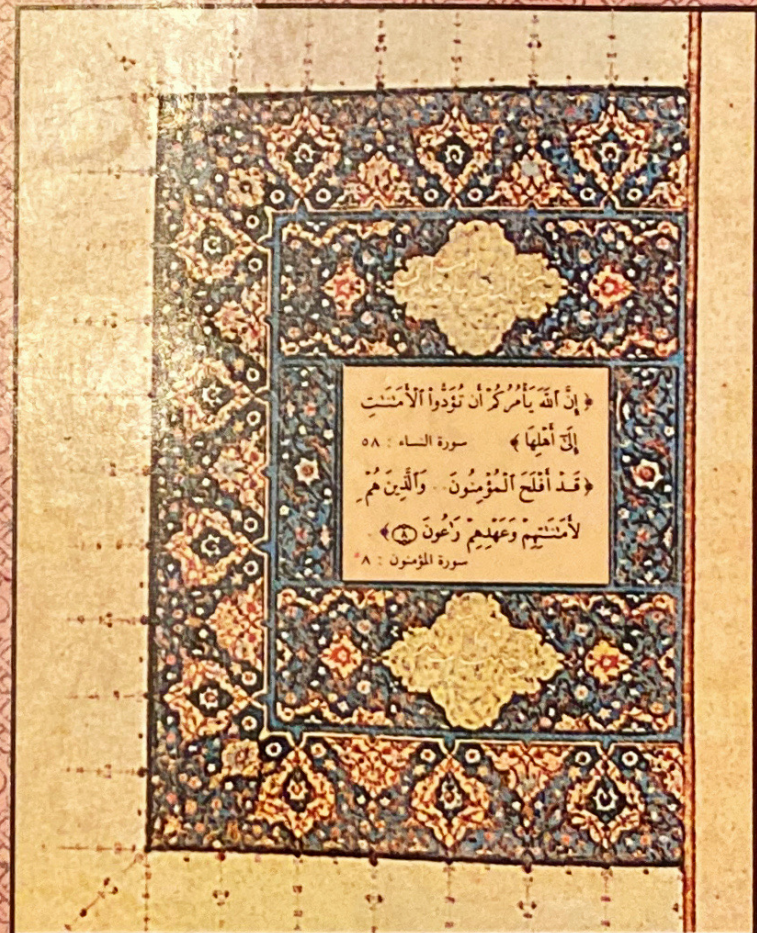 ﴿ إِنَّ ٱللَّهَ يَأْمُرُكُمْ أَن تُؤَدُّوا۟ ٱلْأَمَـٰنَـٰتِ
إِلَىٰٓ أَهْلِهَا ﴾ سورة النساء : ٥٨
﴿ قَدْ أَفْلَحَ ٱلْمُؤْمِنُونَ .. وَٱلَّذِينَ هُمْ
لِأَمَـٰنَـٰتِهِمْ وَعَهْدِهِمْ رَٰعُونَ ٨ ﴾
سورة المؤمنون : ٨